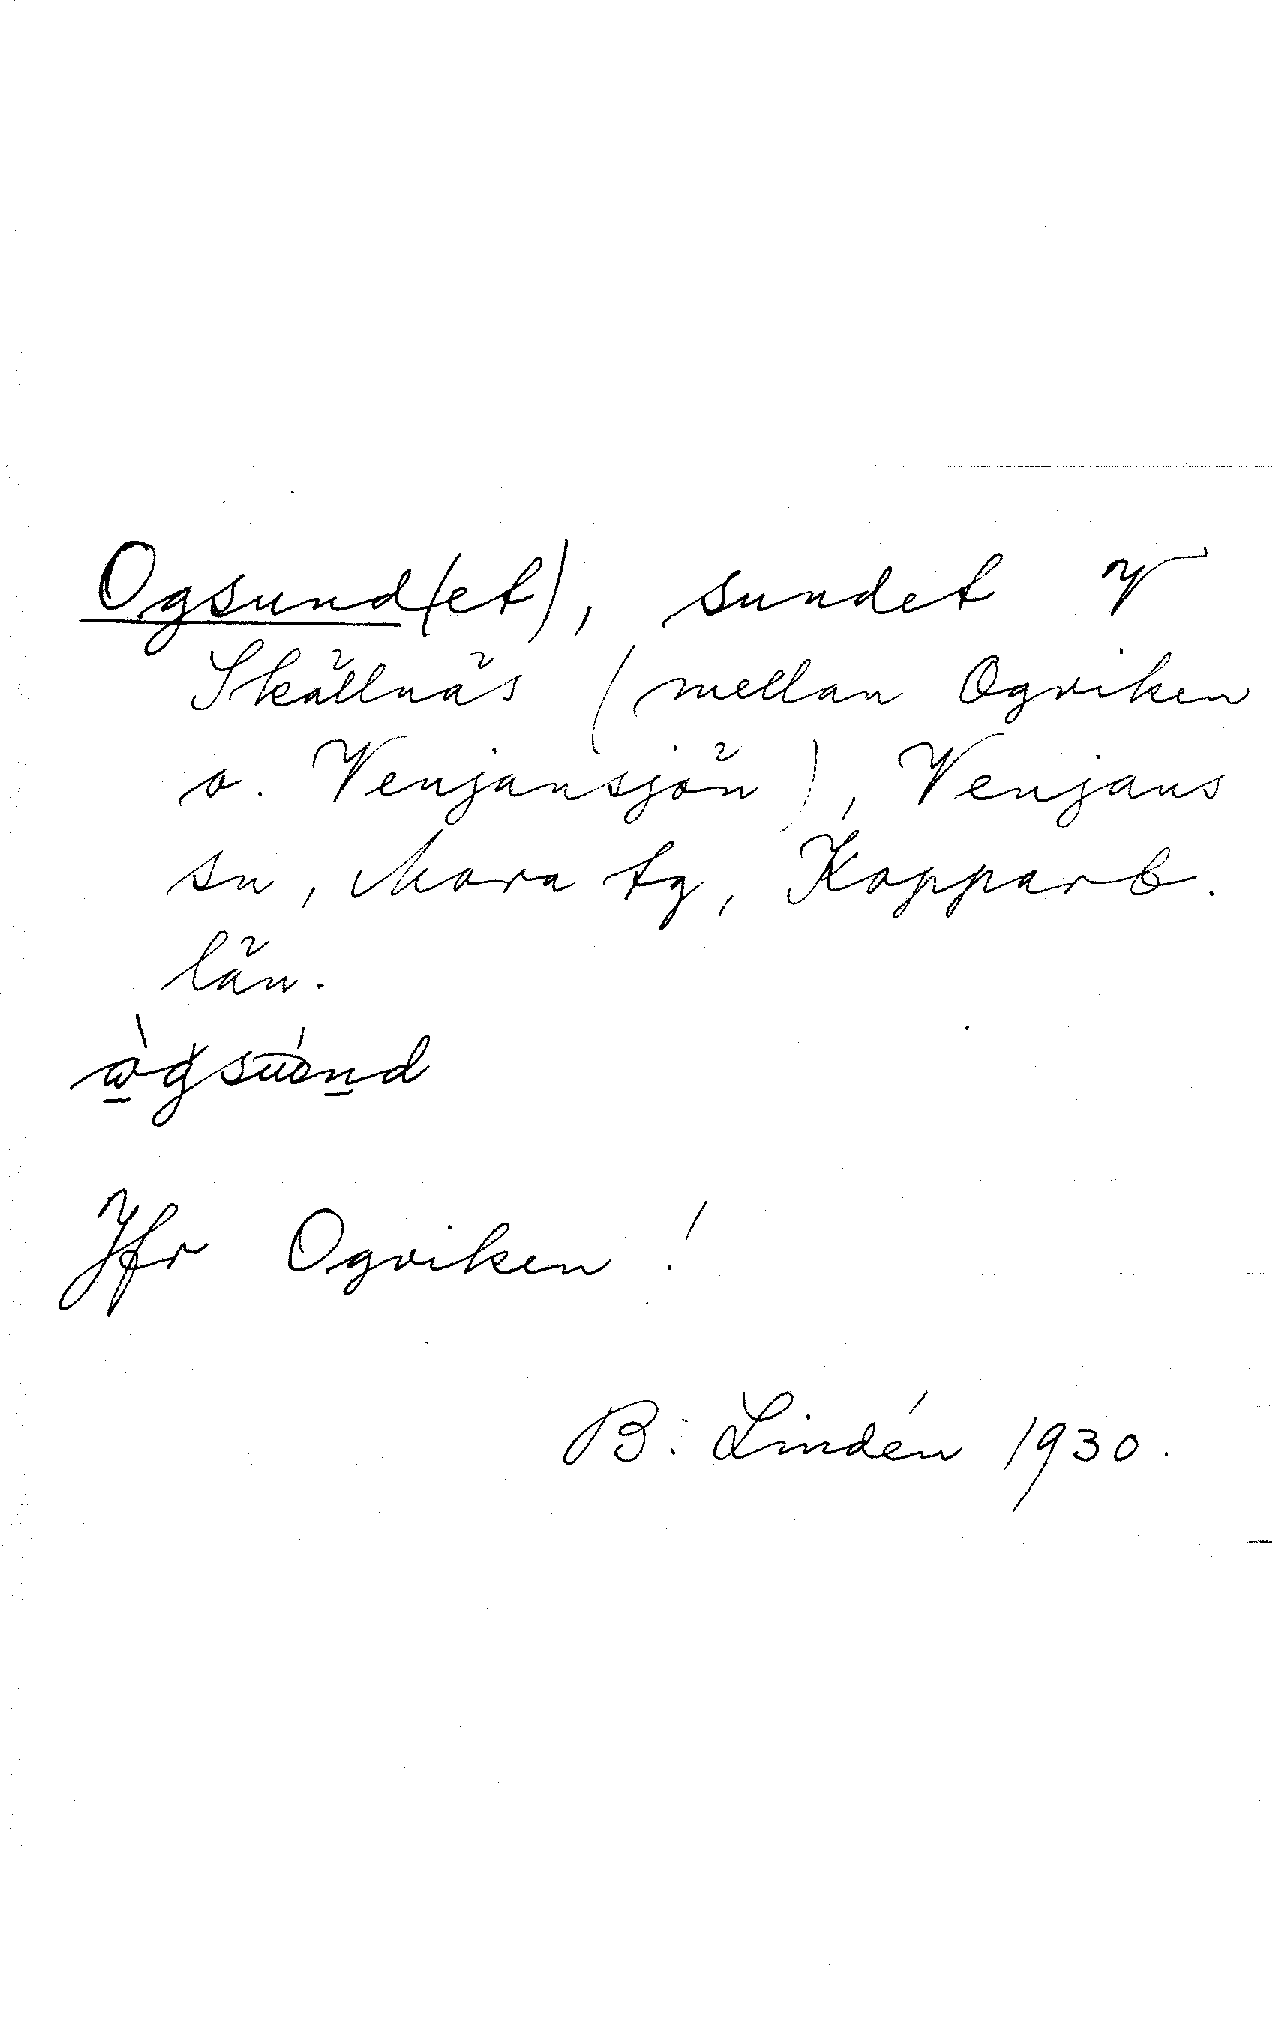 Ogsund(et), sundet V
Skällnäs (mellan Ogviken
o. Venjansjön), Venjans
sn, Mora tg, Kopparb.
län.
Jfr Ogviken!
B. Lindén 1930.